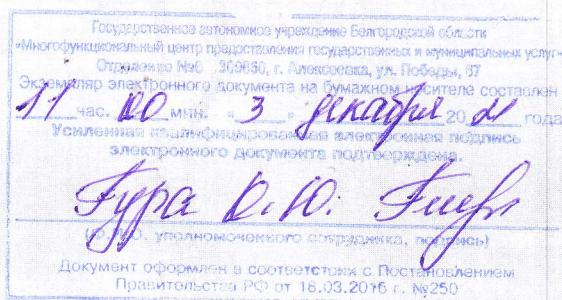 Государственное автономное учреждение Белгородской области
«Многофункциональный центр предоставления государственных и муниципальных услуг»
Отделение №6 , 309850, г. Алексеевка, ул. Победы, 67
Экземпляр электронного документа на бумажном носителе составлен
11 час. 00 мин. «3» декабря 2021 года
Усиленная квалифицированная электронная подпись
электронного документа подтверждена.
Гура О.Ю.
(Ф.И.О. уполномоченного сотрудника, подпись)
Документ оформлен в соответствии с Постановлением
Правительства РФ от 18.03.2015 г. №250